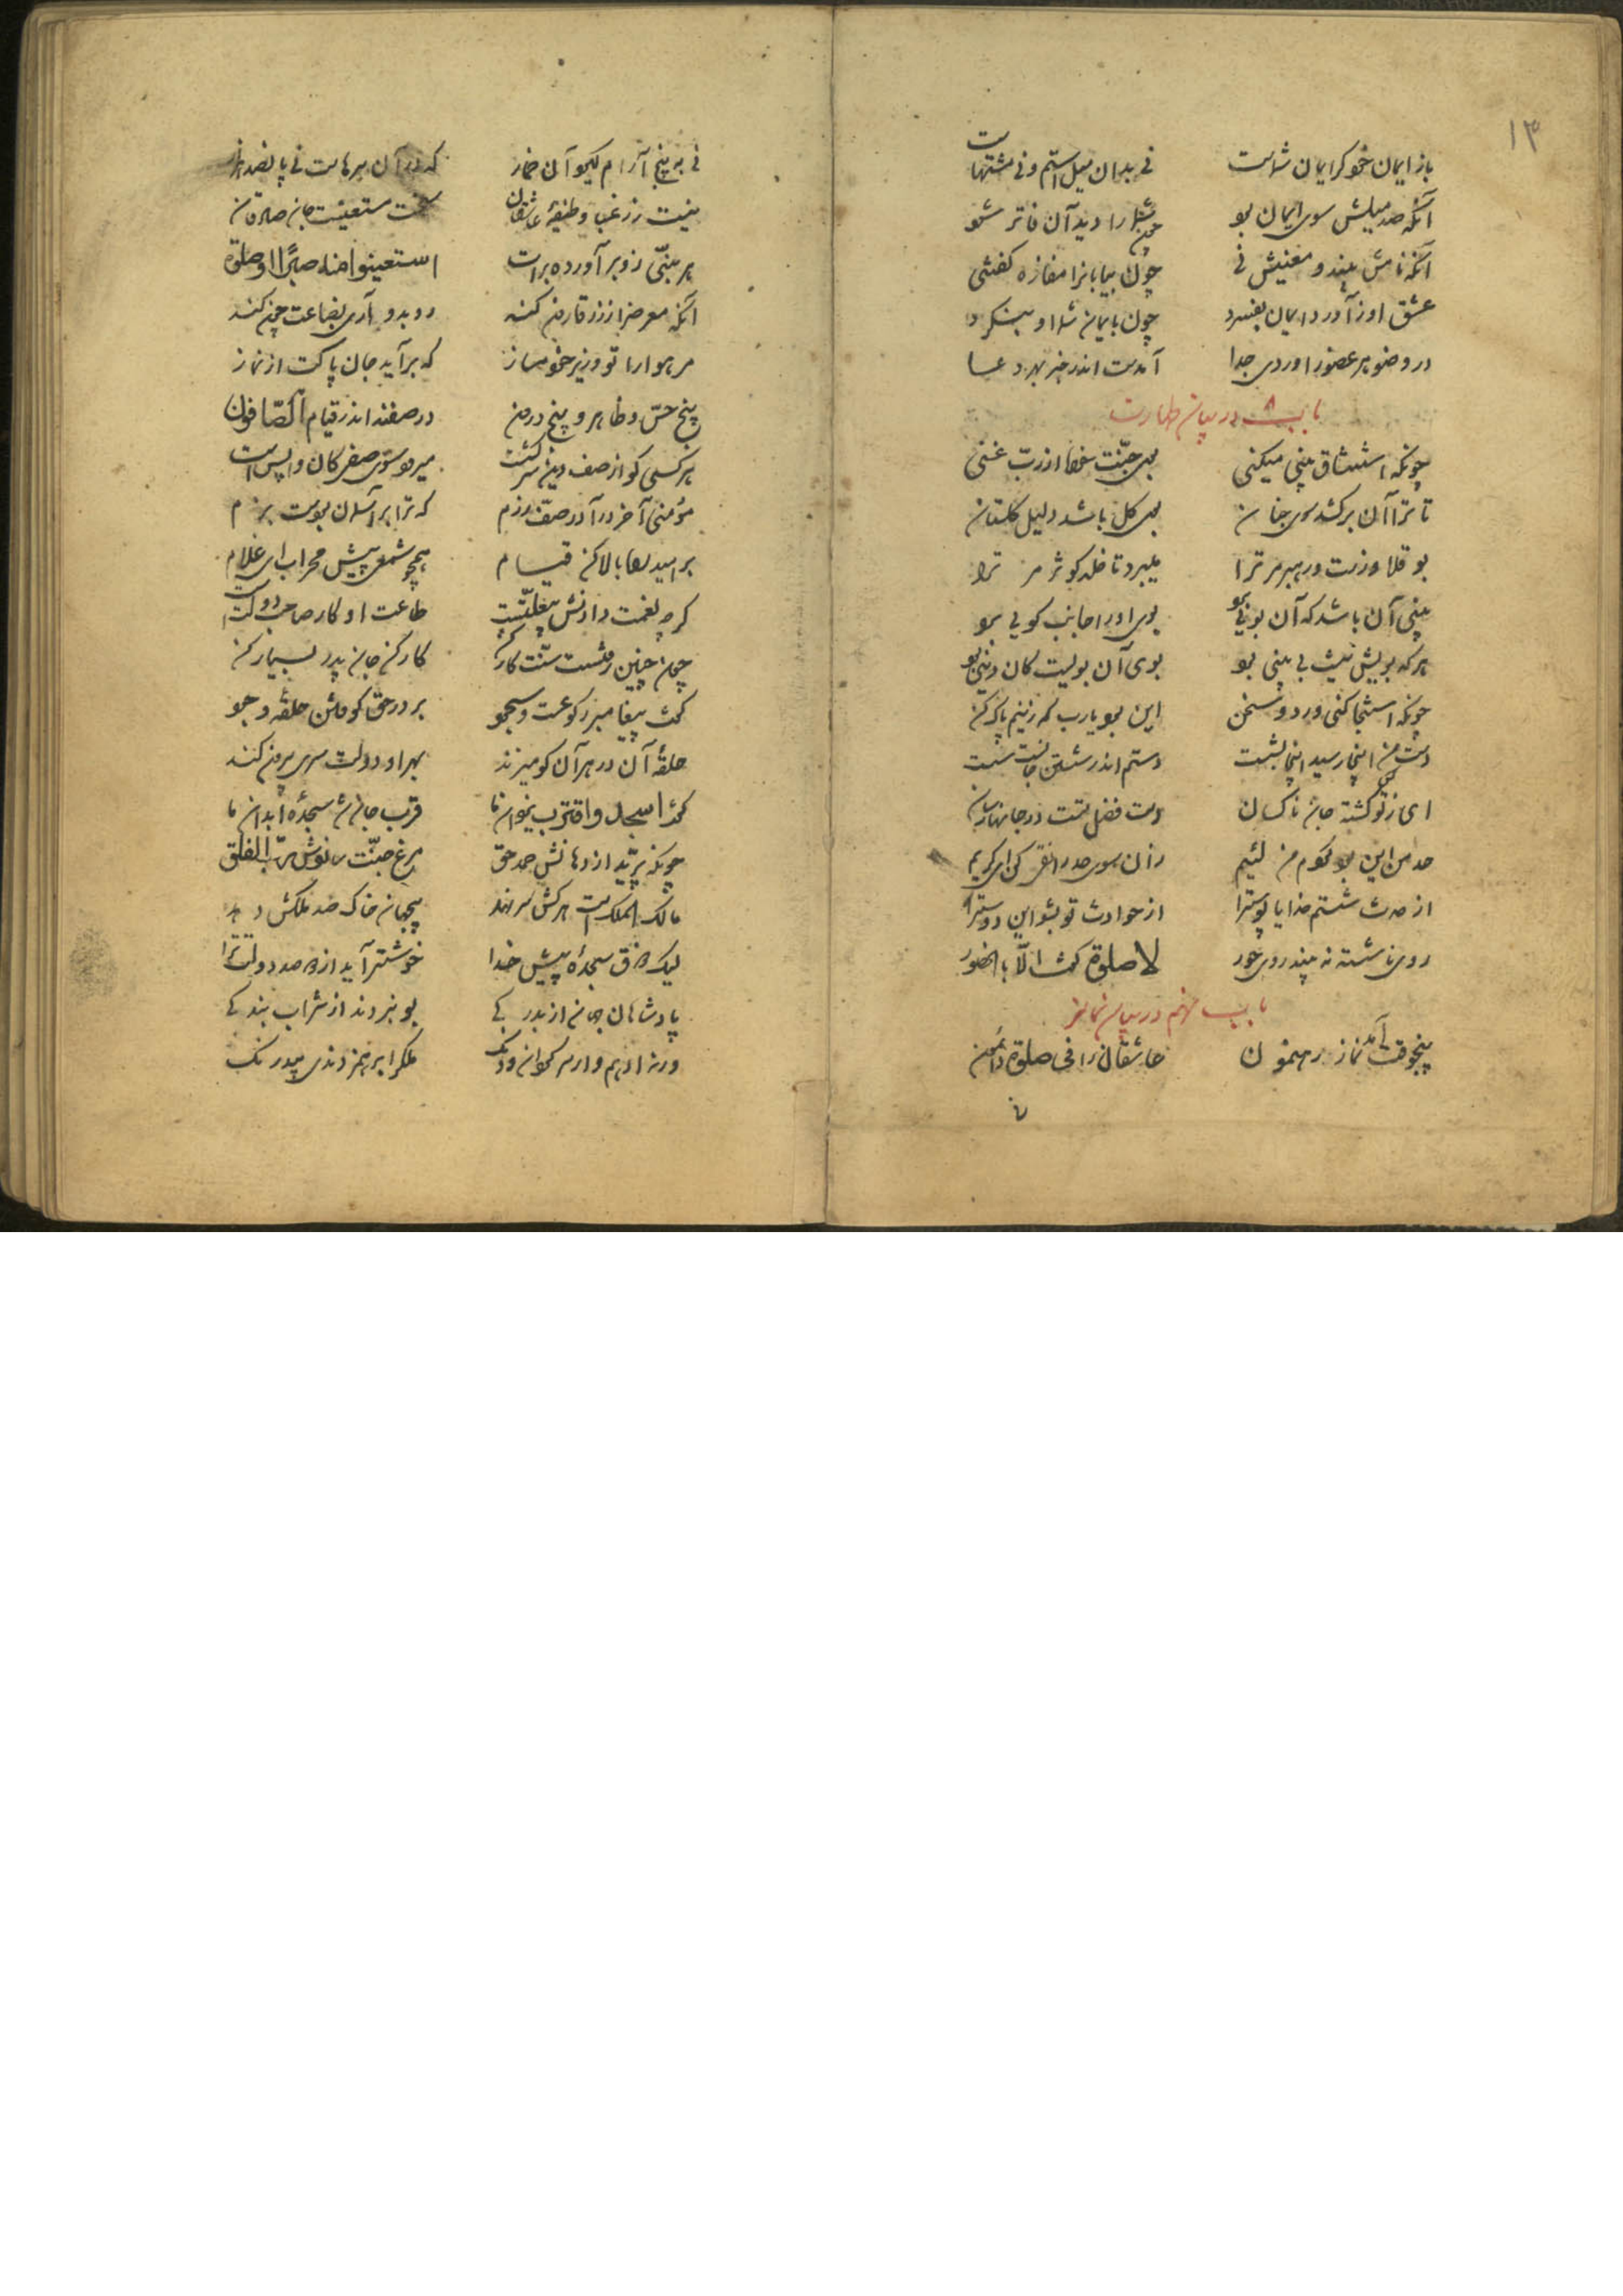 ۱۳
باز ایمان خود گر ایمان شماست نی بدان میل استم و نی مشتهاست
آنکه صد میلش سوی ایمان بود چون شما را دید آن فاتر شود
آنکه نامش بیند و معنیش نی چون بیابانرا مفازه گفتنی
عشق او ز آورد ایمان بفسرد چون بایمان شما او بنگرد
در وضو هر عضو را وردی جدا آمدست اندر خبر بهر دعا
باب در بیان طهارت
چونکه استنشاق بینی میکنی بوی جنّت خواه از ربّ غنی
تا ترا آن بو کشد سوی جنان بوی گل باشد دلیل گلستان
بو قلاوزست و رهبر مر ترا میبرد تا خلد و کوثر مر ترا
بینی آن باشد که آن بویی برد بوی او را جانب کویی برد
هرکه بویش نیست بی بینی بود بوی آن بویست کان دینی بود
چونکه استنجا کنی ورد و سخن این بود یارب که زینم پاک کن
دست من اینجا رسید اینجا بشست دستم اندر شستن جانست سست
ای ز تو کس گشته جان ناکسان دست فضل تست در جانها رسان
حد من این بود کردم من لئیم زان سوی حد را نقی کن ای کریم
از حدث شستم خدایا پوسترا از حوادث تو بشو این دوسترا
روی ناشسته نه بیند روی حور لا صلوة گفت الّا بالحضور
باب نهم در بیان نماز
پنجوقت آمد نماز رهنمون عاشقان را فی صلوة دائمون
نی به پنج آرام گیرد آن خمار که در آن سرهاست نی پانصد هزار
نیست زر غبا وظیفهٔ عاشقان سخت مستسقیست جان صادقان
هر نبیّی زو برآورده برات استعینوا منه صبرًا او صلوة
آنکه معرض را ز زر قارون کند رو بدو آری بطاعت چون کند
مر هوا را تو وزیر خود مساز که برآید جان پاکت از نماز
پنج حسّ ظاهر و پنج درون در صفند اندر قیام الصّافون
هر کسی کو از صف دین سرکشست میرود سوی صفی کان واپس است
مؤمنی آخر در آ در صفّ رزم که ترا بر آسمان بودست بزم
بر امید راه بالا کن قیام همچو شمعی پیش محراب ای غلام
گرچه نعمت دادنش بیعلّتست طاعت او کار صاحب دولتست
چون چنین رفتست سنّت کار کن کار کن جان پدر بسیار کن
گفت پیغامبر رکوعست و سجود بر در حق کوفتن حلقهٔ وجود
حلقهٔ آن در هر آن کو میزند بهر او دولت سری بیرون کند
گفت اسجد واقترب یزدان ما قرب جان شد سجدهٔ ابدان ما
چونکه پرّید از دهانش حمد حق مرغ جنّت ساختش ربّ الفلق
مالک الملک است هر کش سر نهد بی جهان خاک صد ملکش دهد
لیک ذوق سجدهٔ پیش خدا خوشتر آید از دو صد دولت ترا
پادشاهان جهان از بدرگی بو نبردند از شراب بندگی
ورنه ادهم وار سرگردان و دنگ ملک را برهم زدندی بیدرنگ